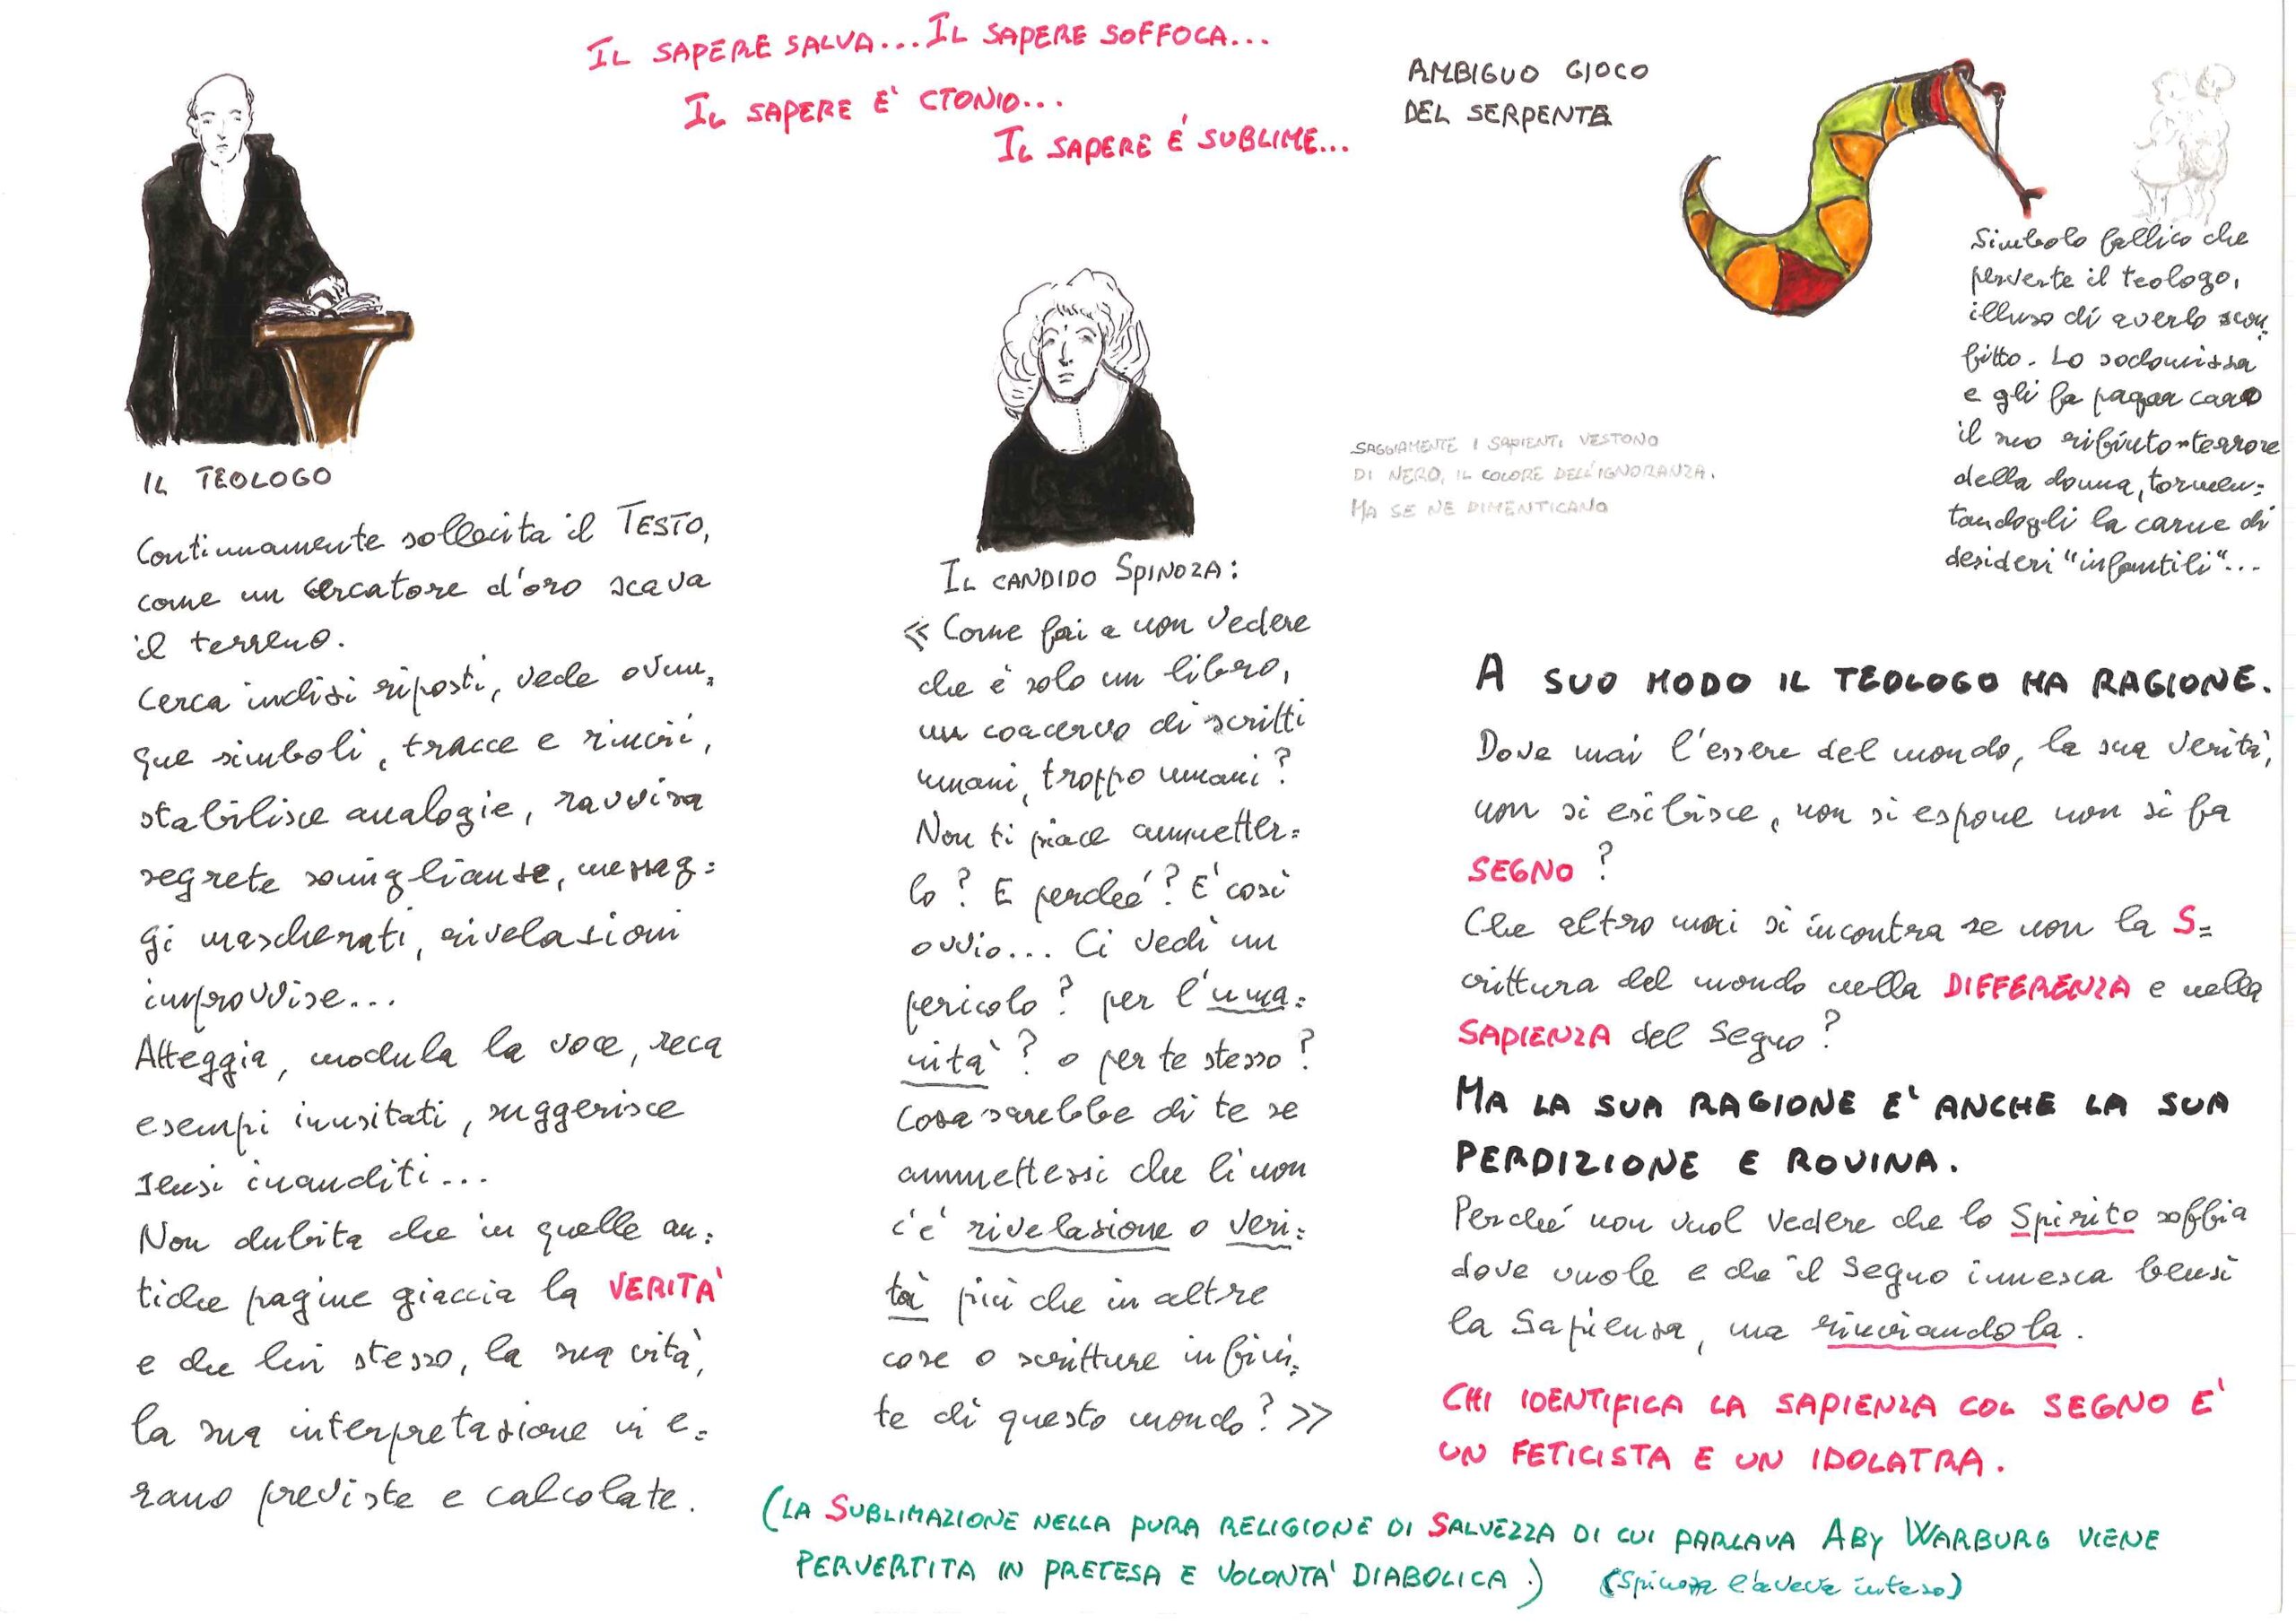 IL SAPERE SALVA...IL SAPERE SOFFOCA...
IL SAPERE E' CTONIO...
IL SAPERE É SUBLIME...
AMBIGUO GIOCO
DEL SERPENTE
Simbolo fallico che
perverte il teologo,
illuso di averlo scon=
fitto. Lo sodomizza
e gli fa pagar caro
il suo rifiuto-terrore
della donna, tormen=
tandogli la carne di
desideri "infantili"...
IL TEOLOGO
Continuamente sollecita il TESTO,
come un cercatore d'oro scava
il terreno.
Cerca indizi riposti, vede ovun=
que simboli, tracce e rinvii,
stabilisce analogie, ravvisa
segrete somiglianze, messag=
gi mascherati, rivelazioni
improvvise...
Atteggia, modula la voce, reca
esempi inusitati, suggerisce
sensi inauditi...
Non dubita che in quelle an=
tiche pagine giaccia la VERITA'
e che lui stesso, la sua vita,
la sua interpretazione vi e=
rano previste e calcolate.
IL CANDIDO SPINOZA:
« Come fai a non vedere
che è solo un libro,
un coacervo di scritti
umani, troppo umani?
Non ti piace ammetter=
lo? E perché? E' così
ovvio... Ci vedi un
pericolo? per l'uma=
nità? o per te stesso?
Cosa sarebbe di te se
ammettessi che lì non
c'è rivelazione o veri=
tà più che in altre
cose o scritture infini=
te di questo mondo? »
SAGGIAMENTE I SAPIENTI VESTONO
DI NERO, IL COLORE DELL'IGNORANZA.
MA SE NE DIMENTICANO
A SUO MODO IL TEOLOGO HA RAGIONE.
Dove mai l'essere del mondo, la sua verità,
non si esibisce, non si espone non si fa
SEGNO?
Che altro mai si incontra se non la S=
crittura del mondo nella DIFFERENZA e nella
SAPIENZA del Segno?
MA LA SUA RAGIONE E' ANCHE LA SUA
PERDIZIONE E ROVINA.
Perché non vuol vedere che lo Spirito soffia
dove vuole e che il Segno innesca bensì
la Sapienza, ma rinviandola.
CHI IDENTIFICA LA SAPIENZA COL SEGNO E'
UN FETICISTA E UN IDOLATRA.
(LA SUBLIMAZIONE NELLA PURA RELIGIONE DI SALVEZZA DI CUI PARLAVA ABY WARBURG VIENE
PERVERTITA IN PRETESA E VOLONTA' DIABOLICA.) (Spinoza l'aveva inteso)